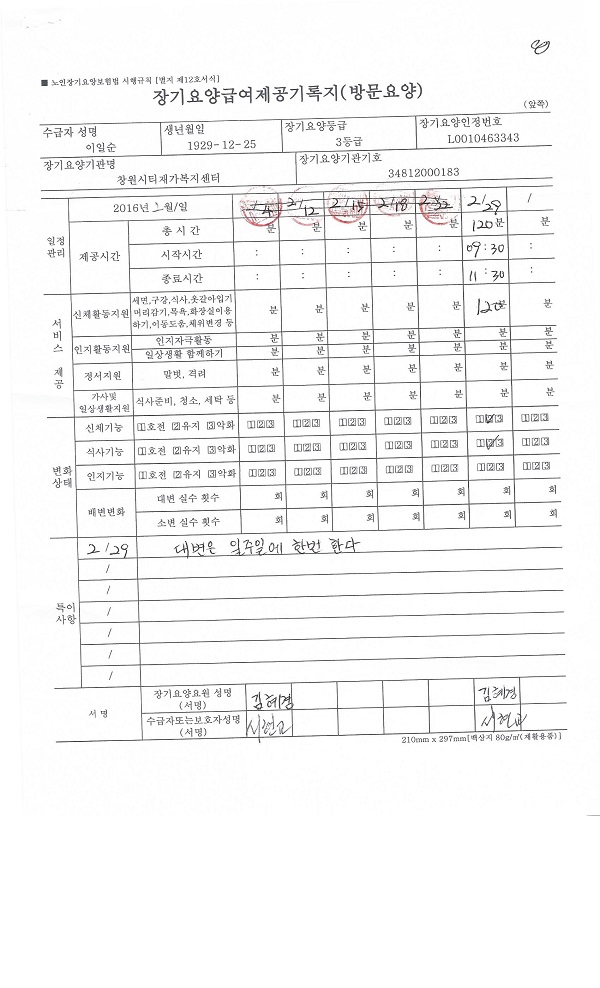 ■ 노인장기요양보험법 시행규칙 [별지 제12호서식]
장기요양급여제공기록지(방문요양)
(앞쪽)
수급자 성명 생년월일 장기요양등급 장기요양인정번호
이일순 1929-12-25 3등급 L0010463343
장기요양기관명 장기요양기관기호
창원시티재가복지센터 34812000183
2016년 2월/일 2/12 2/15 2/18 2/29 /
일정관리 제공시간 총 시 간 분 분 분 분 분 120분 분
시작시간 : : : : : 09:30 :
종료시간 : : : : : 11:30 :
서비스 제공
신체활동지원 세면,구강,식사,옷갈아입기
머리감기,목욕,화장실이용
하기,이동도움,체위변경 등 분 분 분 분 분 120분 분
인지활동지원 인지자극활동 분 분 분 분 분 분 분
일상생활 함께하기 분 분 분 분 분 분 분
정서지원 말벗, 격려 분 분 분 분 분 분 분
가사및
일상생활지원 식사준비, 청소, 세탁 등 분 분 분 분 분 분 분
변화상태
신체기능 1호전 2유지 3악화 123 123 123 123 123 123 123
식사기능 1호전 2유지 3악화 123 123 123 123 123 123 123
인지기능 1호전 2유지 3악화 123 123 123 123 123 123 123
배변변화 대변 실수 횟수 회 회 회 회 회 회 회
소변 실수 횟수 회 회 회 회 회 회 회
특이사항
2/29 대변은 일주일에 한번 한다
/
/
/
/
/
/
서 명
장기요양요원 성명
(서명) 김혜경 김혜경
수급자또는보호자성명
(서명)
210mm x 297mm[백상지 80g/㎡(재활용품)]